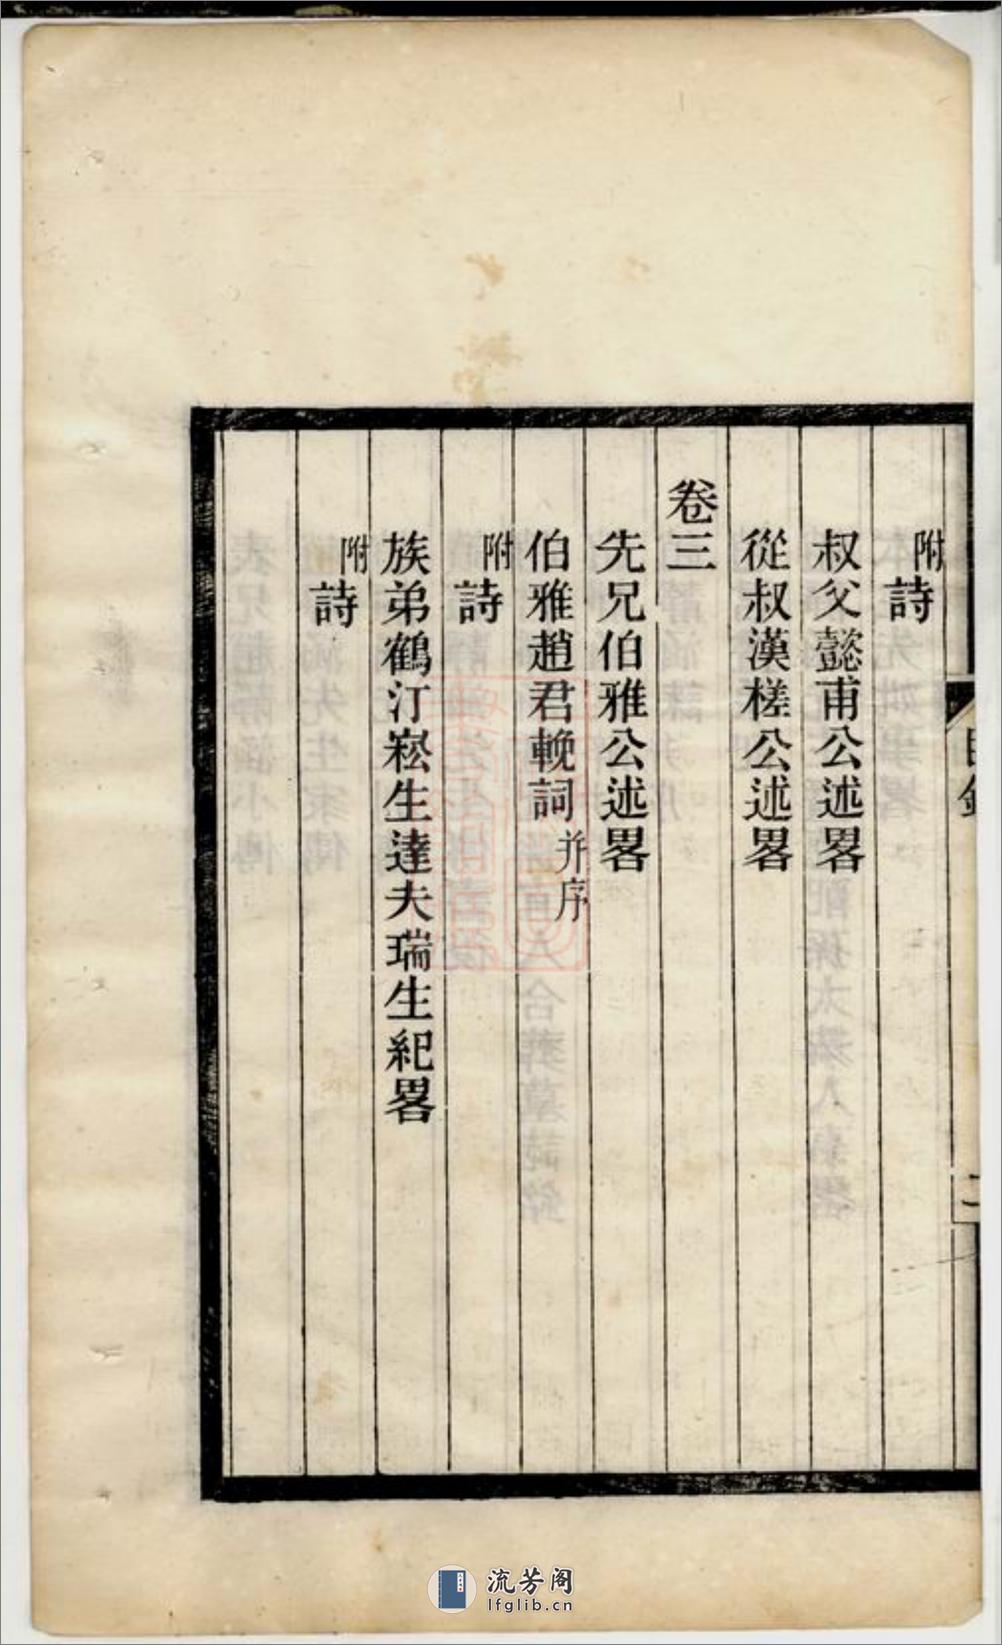 附詩
叔父懿甫公述畧
從叔漢槎公述畧
卷三
先兄伯雅公述畧
伯雅趙君輓詞并序
附詩
族弟鶴汀崧生達夫瑞生紀畧
附詩
流芳阁
lfglib.cn